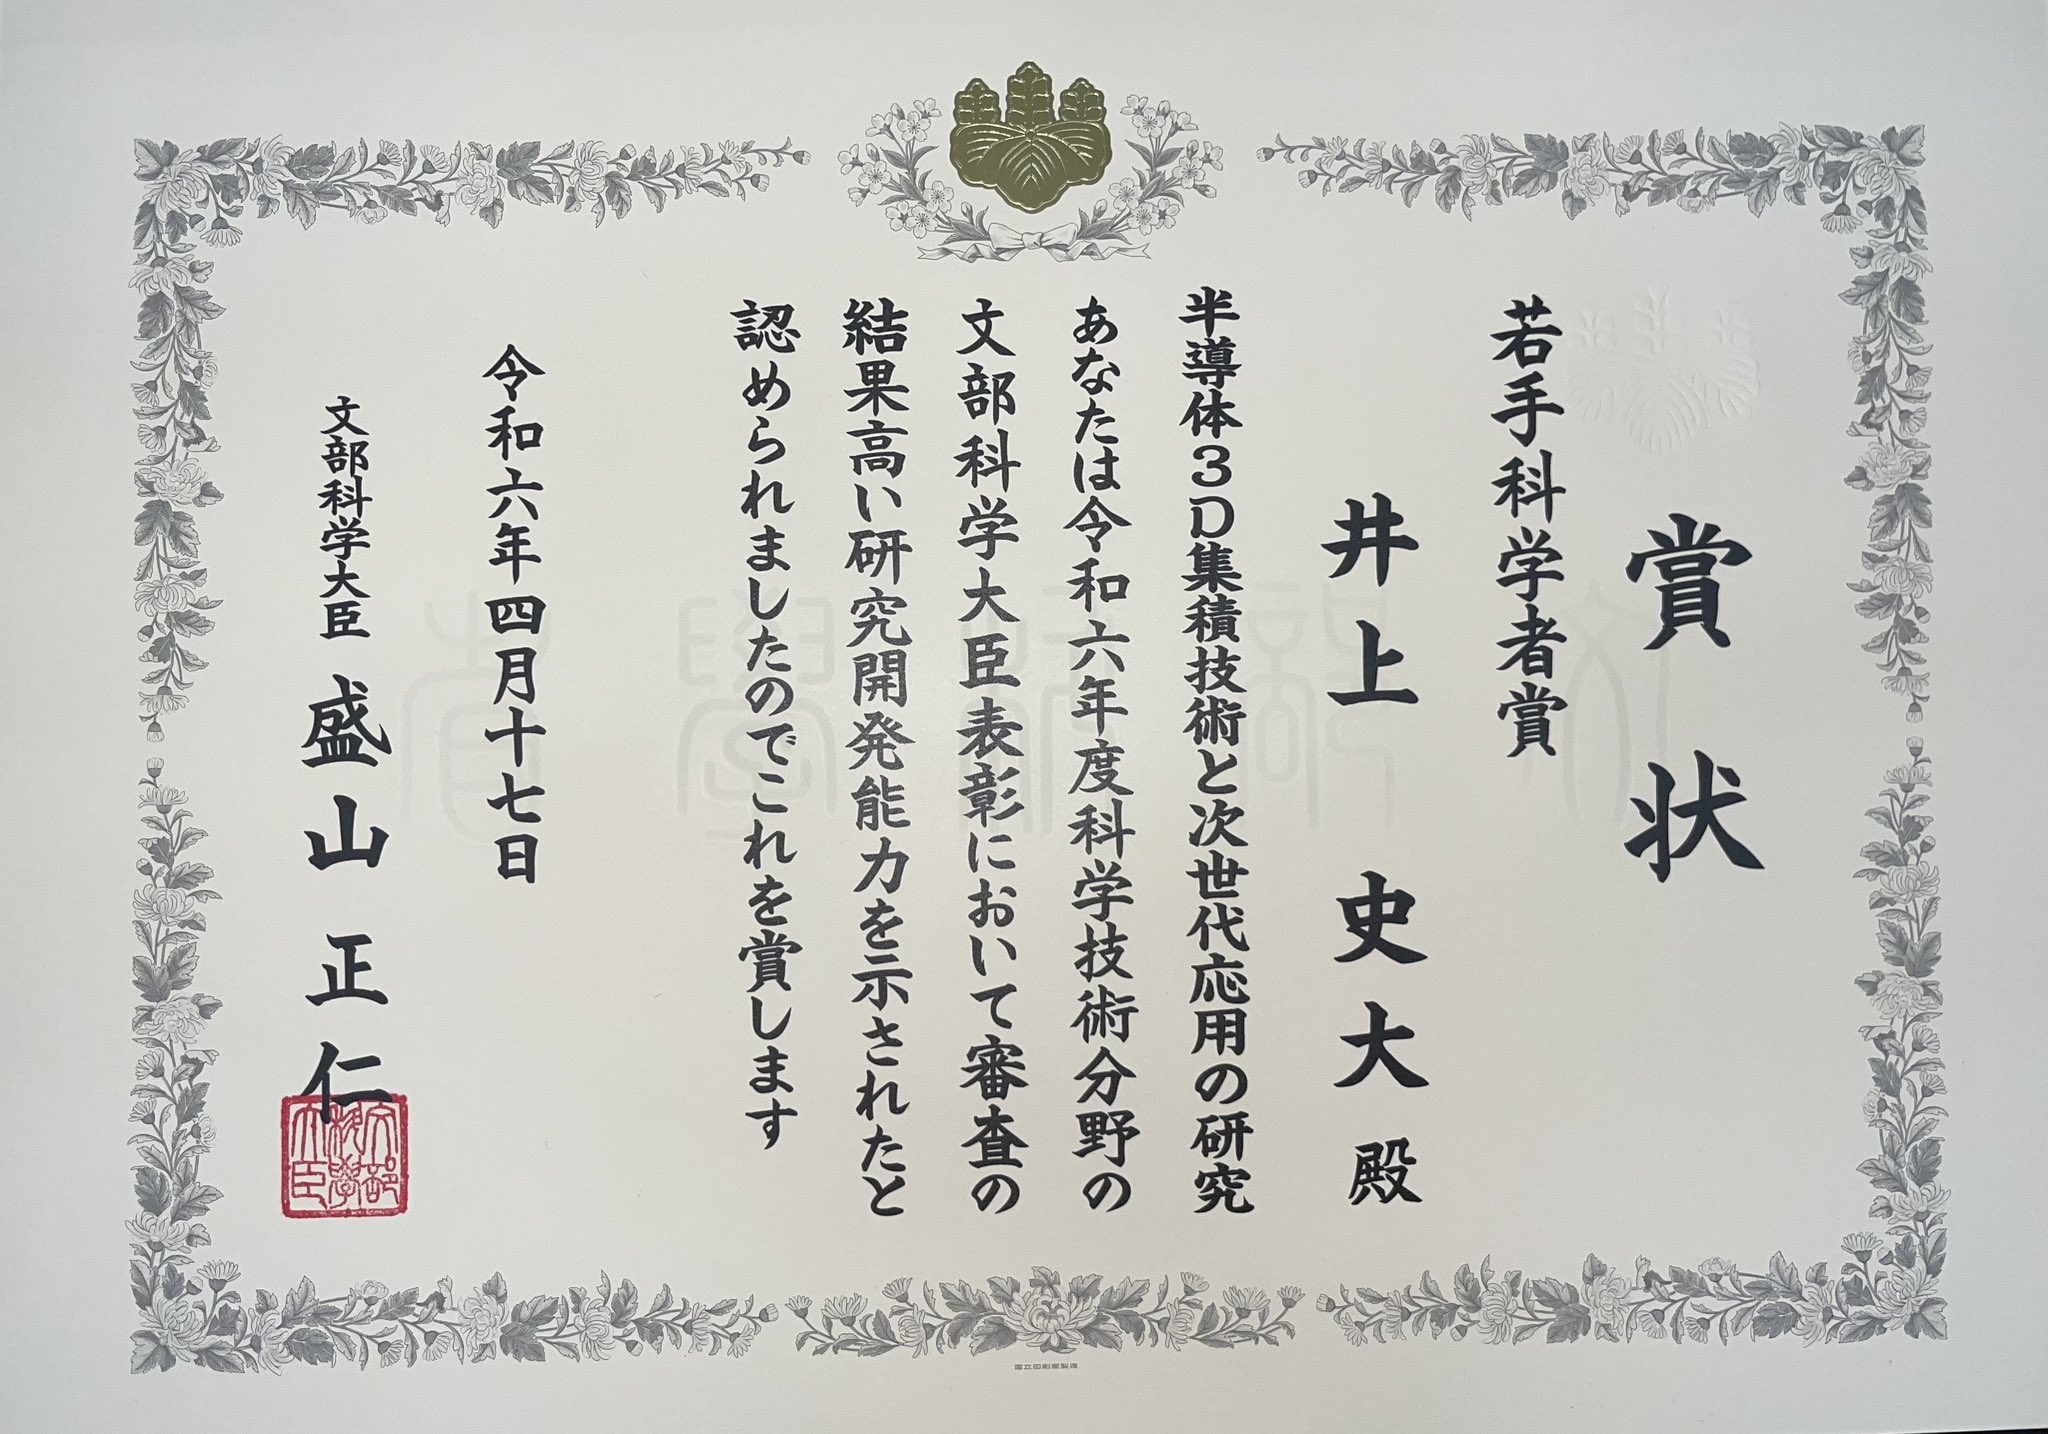 賞状
若手科学者賞
井上 史大 殿
半導体3D集積技術と次世代応用の研究
あなたは令和六年度科学技術分野の
文部科学大臣表彰において審査の
結果高い研究開発能力を示されたと
認められましたのでこれを賞します
令和六年四月十七日
文部科学大臣 盛山正仁
文部
科學
大臣
文部科學省
国立印刷局製造